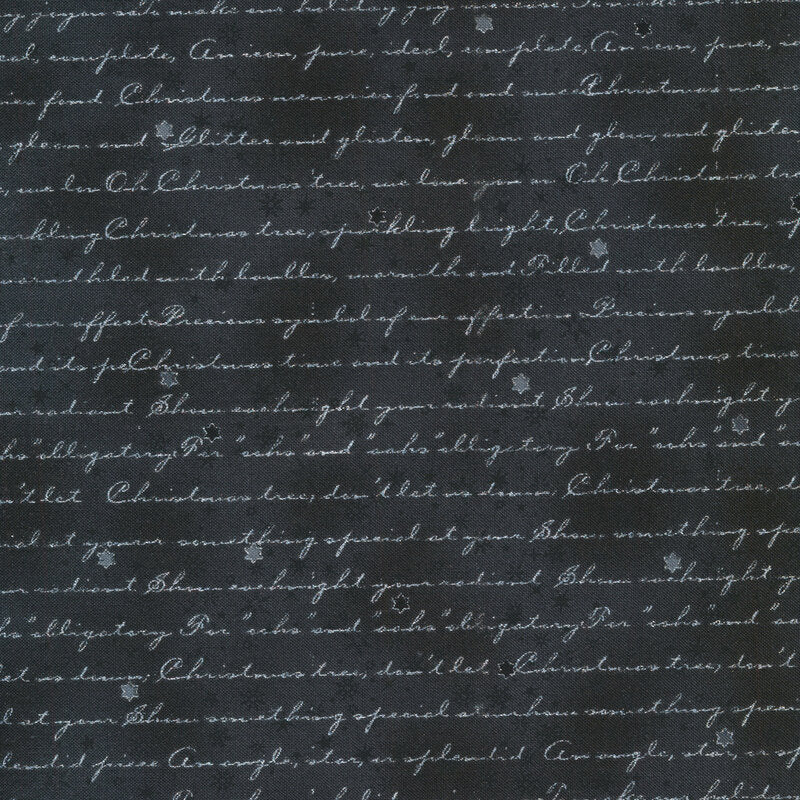 make our holiday joy increase, To make our
complete, An icon, pure, ideal, complete, An icon, pure,
fond Christmas memories fond and sweet Christmas memories
gleam and Glitter and glisten, gleam and glow, and glisten
we lov Oh Christmas tree, we love you so Oh Christmas tre
rkling Christmas tree, sparkling bright, Christmas tree, sp
with baubles, warmth and Filled with baubles,
of our affect Precious symbol of our affection Precious symbol
nd its pe Christmas time and its perfection Christmas time
ur radiant Show each night your radiant Show each night y
hs" obligatory For "oohs" and "aahs" obligatory For "oohs" and "a
n't let Christmas tree, don't let us down; Christmas tree, d
ial at your something special at your Show something spe
ur radiant Show each night your radiant Show each night y
hs" obligatory For "oohs" and "aahs" obligatory For "oohs" and "aa
et us down; Christmas tree, don't let Christmas tree, don't
l at your Show something special show something speci
lendid piece An angle, star, or splendid An angle, star, or sp